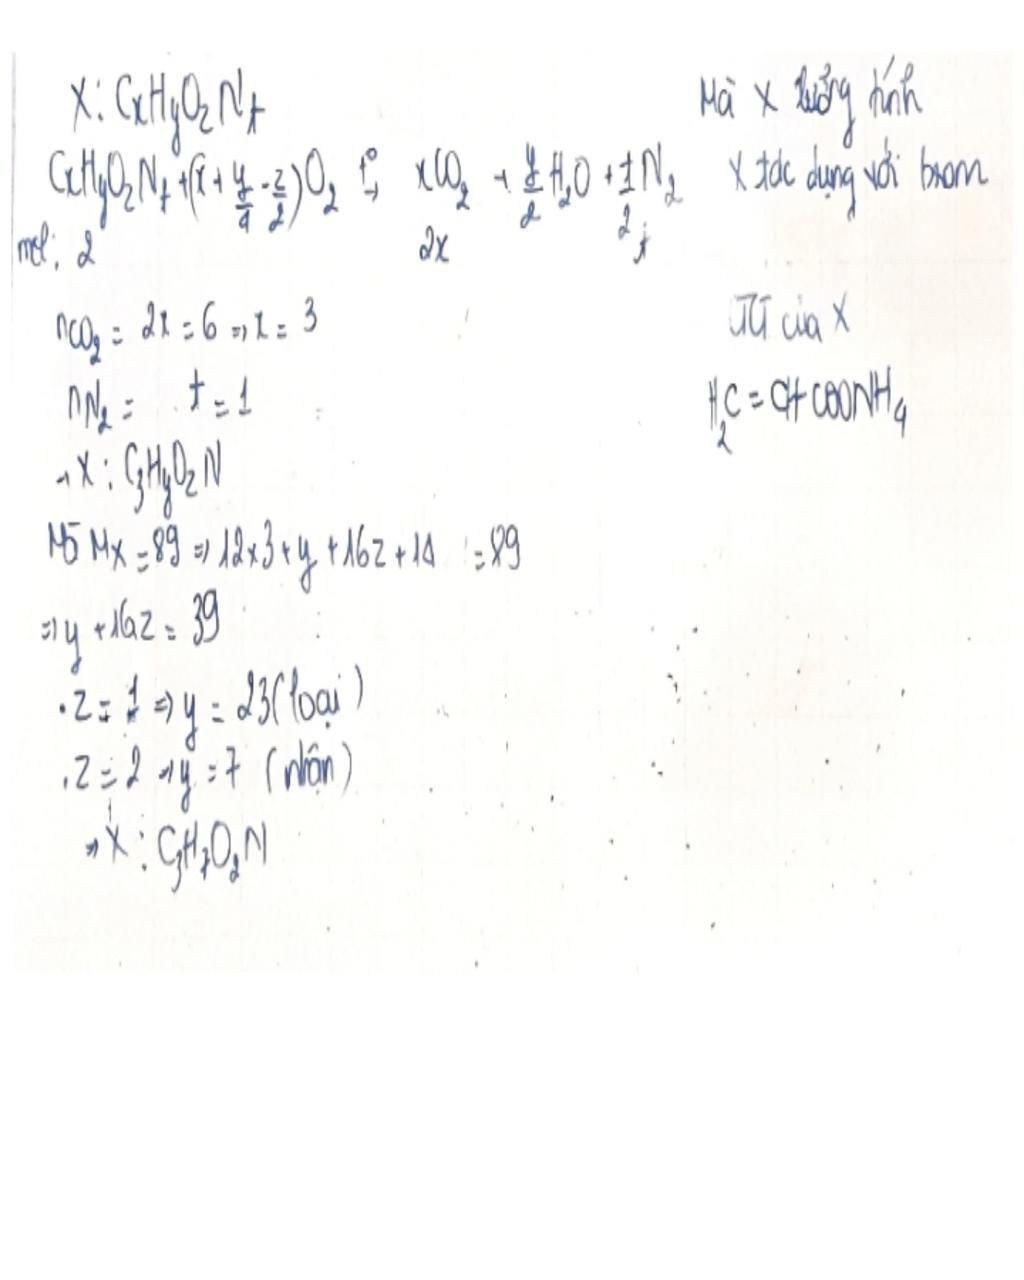 X: CxHyO2Nt
CxHyO2Nt + (x + y/4 - z/2)O2 t° → xCO2 + y/2 H2O + t/2 N2
mol: 2 2x t
nCO2 = 2x = 6 ⇒ x = 3
nN2 = t = 1
→ X: C3HyO2N
MX = 89 ⇒ 12x3 + y + 16z + 14 = 89
⇒ y + 16z = 39
. z = 1 ⇒ y = 23 (loại)
. z = 2 → y = 7 (nhận)
⇒ X: C3H7O2N
Mà X lưỡng tính
X tác dụng với brom
CT của X
H2C = CH COONH4